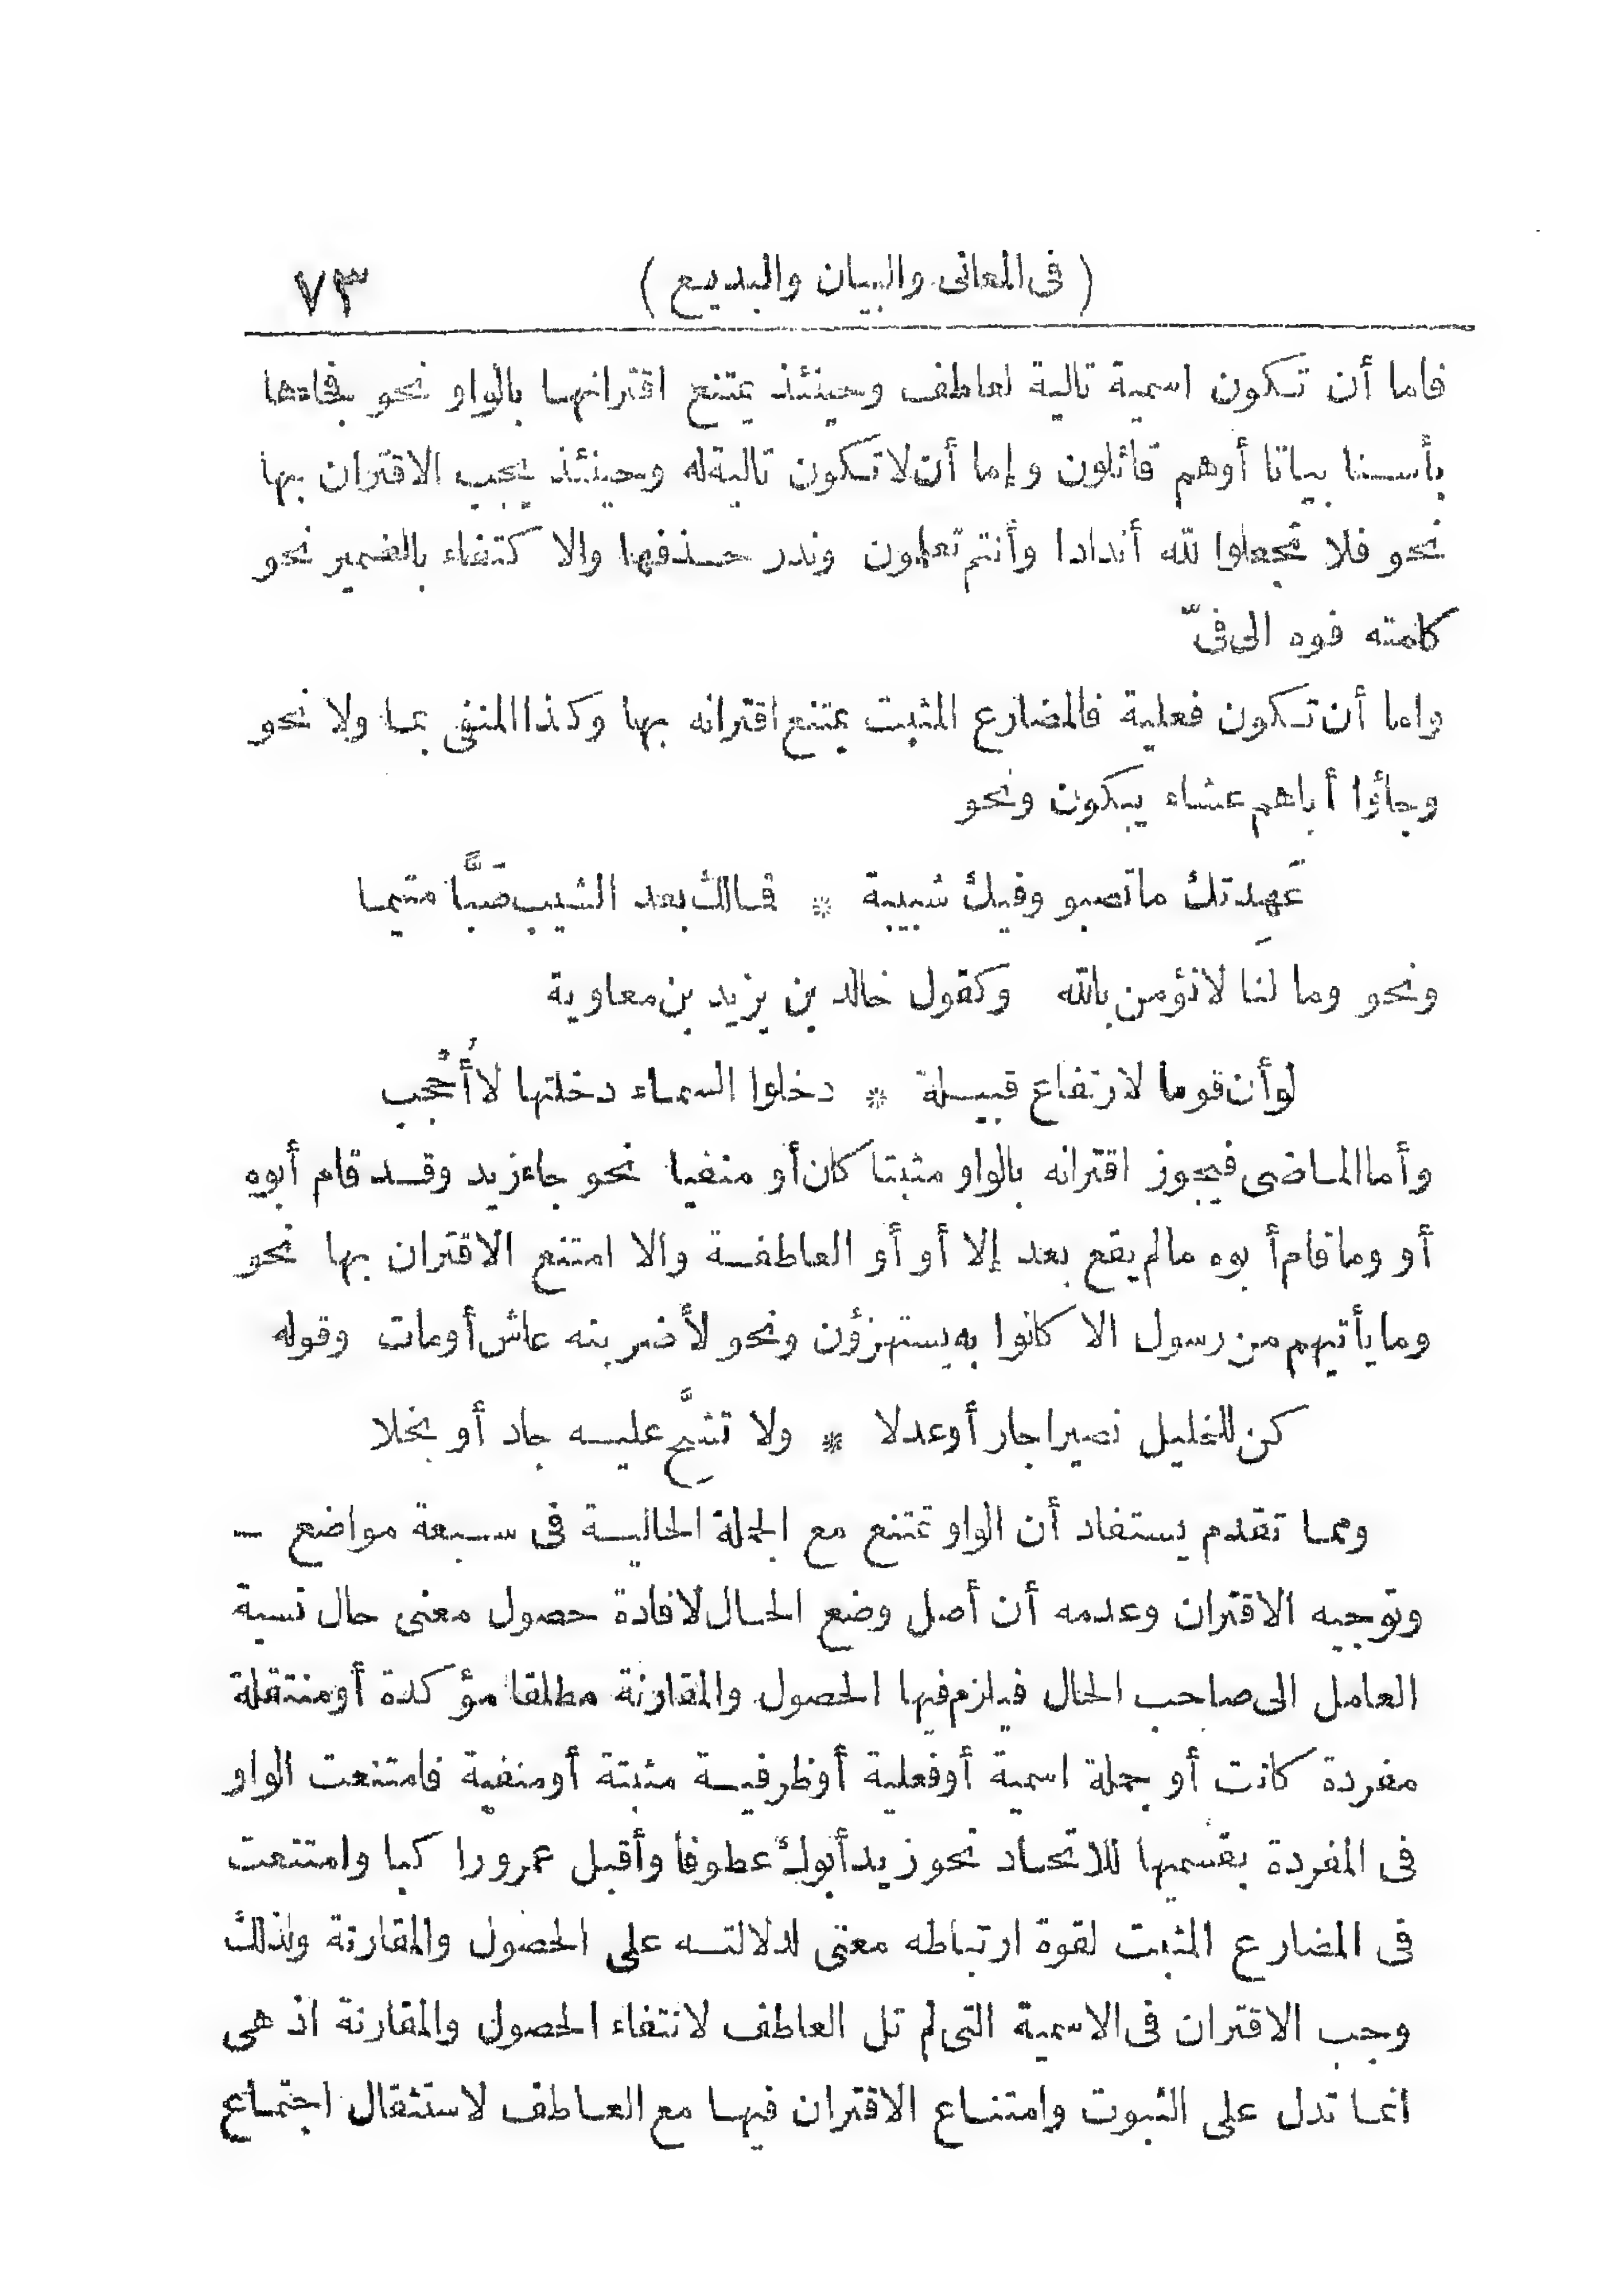 ( فى المعانى والبيان والبديع ) ٧٣
فاما أن تكون اسمية تالية لعاطف وحينئذ يمتنع اقترانها بالواو نحو فجاءها
بأسنا بياتا أوهم قائلون وإما أن لا تكون تالية له وحينئذ يجب الاقتران بها
نحو فلا تجعلوا لله أندادا وأنتم تعلمون وندر حذفها والا كتفاء بالضمير نحو
كلمته فوه الى فىّ
واما أن تكون فعلية فالمضارع المثبت يمتنع اقترانه بها وكذا المنفى بما ولا نحو
وجاؤا أباهم عشاء يبكون ونحو
عَهِدتك ما تصبو وفيك شبيبة * فمالك بعد الشيب صَبًّا متيما
ونحو وما لنا لا نؤمن بالله وكقول خالد بن يزيد بن معاوية
لو أن قوما لارتفاع قبيلة * دخلوا السماء دخلتها لا أُحْجب
وأما الماضى فيجوز اقترانه بالواو مثبتا كان أو منفيا نحو جاء زيد وقد قام أبوه
أو وما قام أبوه مالم يقع بعد إلا أو أو العاطفة والا امتنع الاقتران بها نحو
وما يأتيهم من رسول الا كانوا به يستهزؤن ونحو لأضربنه عاش أومات وقوله
كن للخليل نصيرا جار أوعدلا * ولا تشحَِّ عليه جاد أو بخلا
ومما تقدم يستفاد أن الواو تمتنع مع الجملة الحالية فى سبعة مواضع —
وتوجيه الاقتران وعدمه أن أصل وضع الحال لافادة حصول معنى حال نسبة
العامل الى صاحب الحال فيلزم فيها الحصول والمقارنة مطلقا مؤكدة أومنتقلة
مفردة كانت أو جملة اسمية أوفعلية أوظرفية مثبتة أومنفية فامتنعت الواو
فى المفردة بقسميها للاتحاد نحو زيد أبوك عطوفا وأقبل عمرو را كبا وامتنعت
فى المضارع المثبت لقوة ارتباطه معنى لدلالته على الحصول والمقارنة ولذلك
وجب الاقتران فى الاسمية التى لم تل العاطف لانتفاء الحصول والمقارنة اذ هى
انما تدل على الثبوت وامتناع الاقتران فيها مع العاطف لاستثقال اجتماع